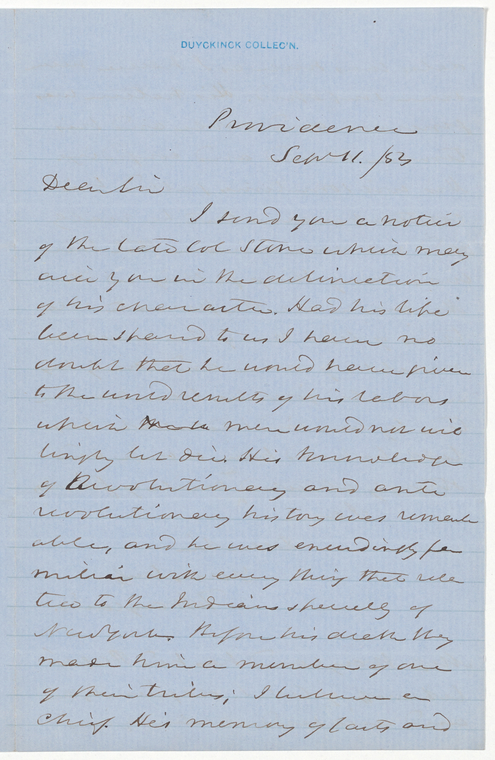 DUYCKINCK COLLEC'N.
Providence
Sept 11. /53
Dear Sir
I send you a notice
of the late Col Stone which may
aid you in the delineation
of his character. Had his life
been spared to us I have no
doubt that he would have given
to the world results of his labors
which men would not wil
lingly let die. His knowledge
of Revolutionary and ante
revolutionary history was remark
able, and he was exceedingly fa
miliar with every thing that rela
ted to the Indians specially of
New York. Before his death they
made him a member of one
of their tribes; I believe a
chief. His memory of facts and